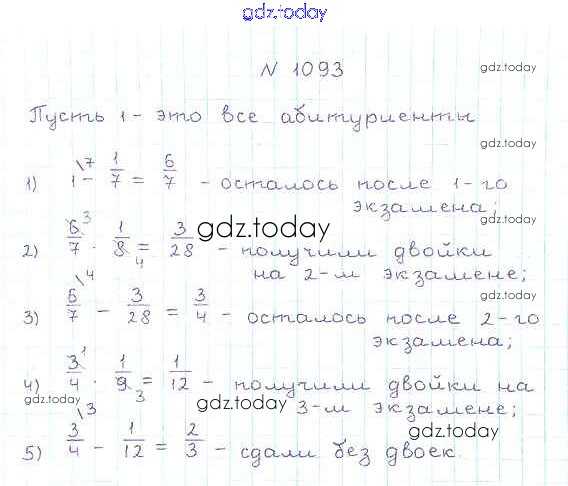 gdz.today
N 1093
gdz.today
Пусть 1 - это все абитуриенты
gdz.today
1) 1\7 - 1/7 = 6/7 - осталось после 1-го
экзамена;
gdz.today
2) 6 3/7 · 1/8 4 = 3/28 - получили двойки
gdz.today
на 2-м экзамене;
3) 6/7\4 - 3/28 = 3/4 - осталось после 2-го
gdz.today
экзамена;
4) 3 1/4 · 1/9 3 = 1/12 - получили двойки на
gdz.today
gdz.today
3-м экзамене;
gdz.today
5) 3/4\3 - 1/12 = 2/3 - сдали без двоек.